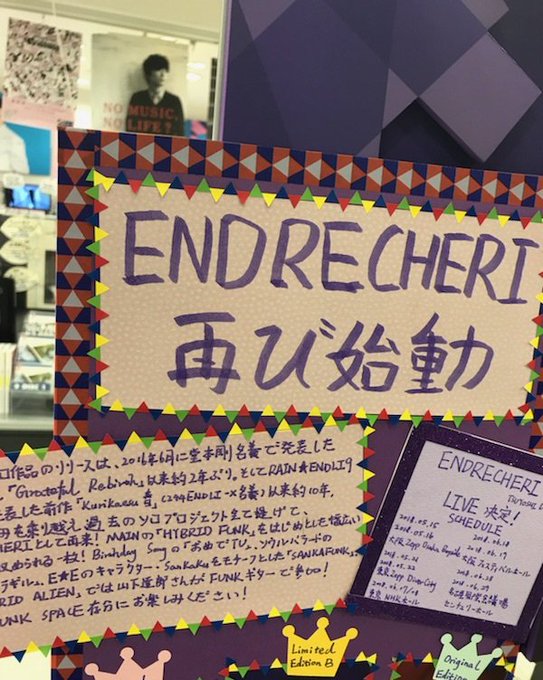 NO MUSIC,
NO LIFE?
ENDRECHERI
再び始動
ロ作品のリリースは、2016年6月に堂本剛名義で発表した
「Grateful Rebirth」以来約2年ぶり。そしてRAIN★ENDLI9
表した前作「Kurikaesu 春」(244ENDLI-X名義)以来約10年。
を乗り越え過去のソロプロジェクト全て繋げて、
HERIとして再来!MAINの「HYBRID FUNK」をはじめとした幅広い
収められる一枚!Birthday Songの「おめでTU」、ソウルバラードの
E★Eのキャラクター・Sankakuをモチーフとした「SANKAFUNK」
RID ALIEN」では山下達郎さんがFUNKギターで参加!
UNK SPACE存分にお楽しみください!
ENDRECHERI
TSUYOSHI
LIVE 決定!
SCHEDULE
2018.05.15
2018.05.16
大阪 Zepp Osaka Bayside
2018.05.22
東京 Zepp DiverCity
東京 NHKホール
2018.06.17
大阪 フェスティバルホール
2018.06.28
2018.06.29
名古屋国際会議場
センチュリーホール
Limited
Edition B
Original
Edition